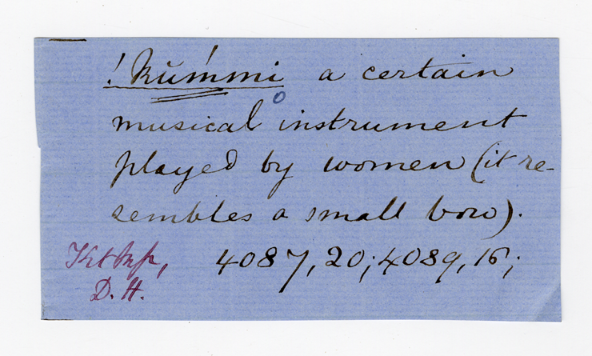 !kŭ́mmi a certain
musical instrument
played by women (it re-
sembles a small bow).
4087, 20; 4089, 16;
D. H.